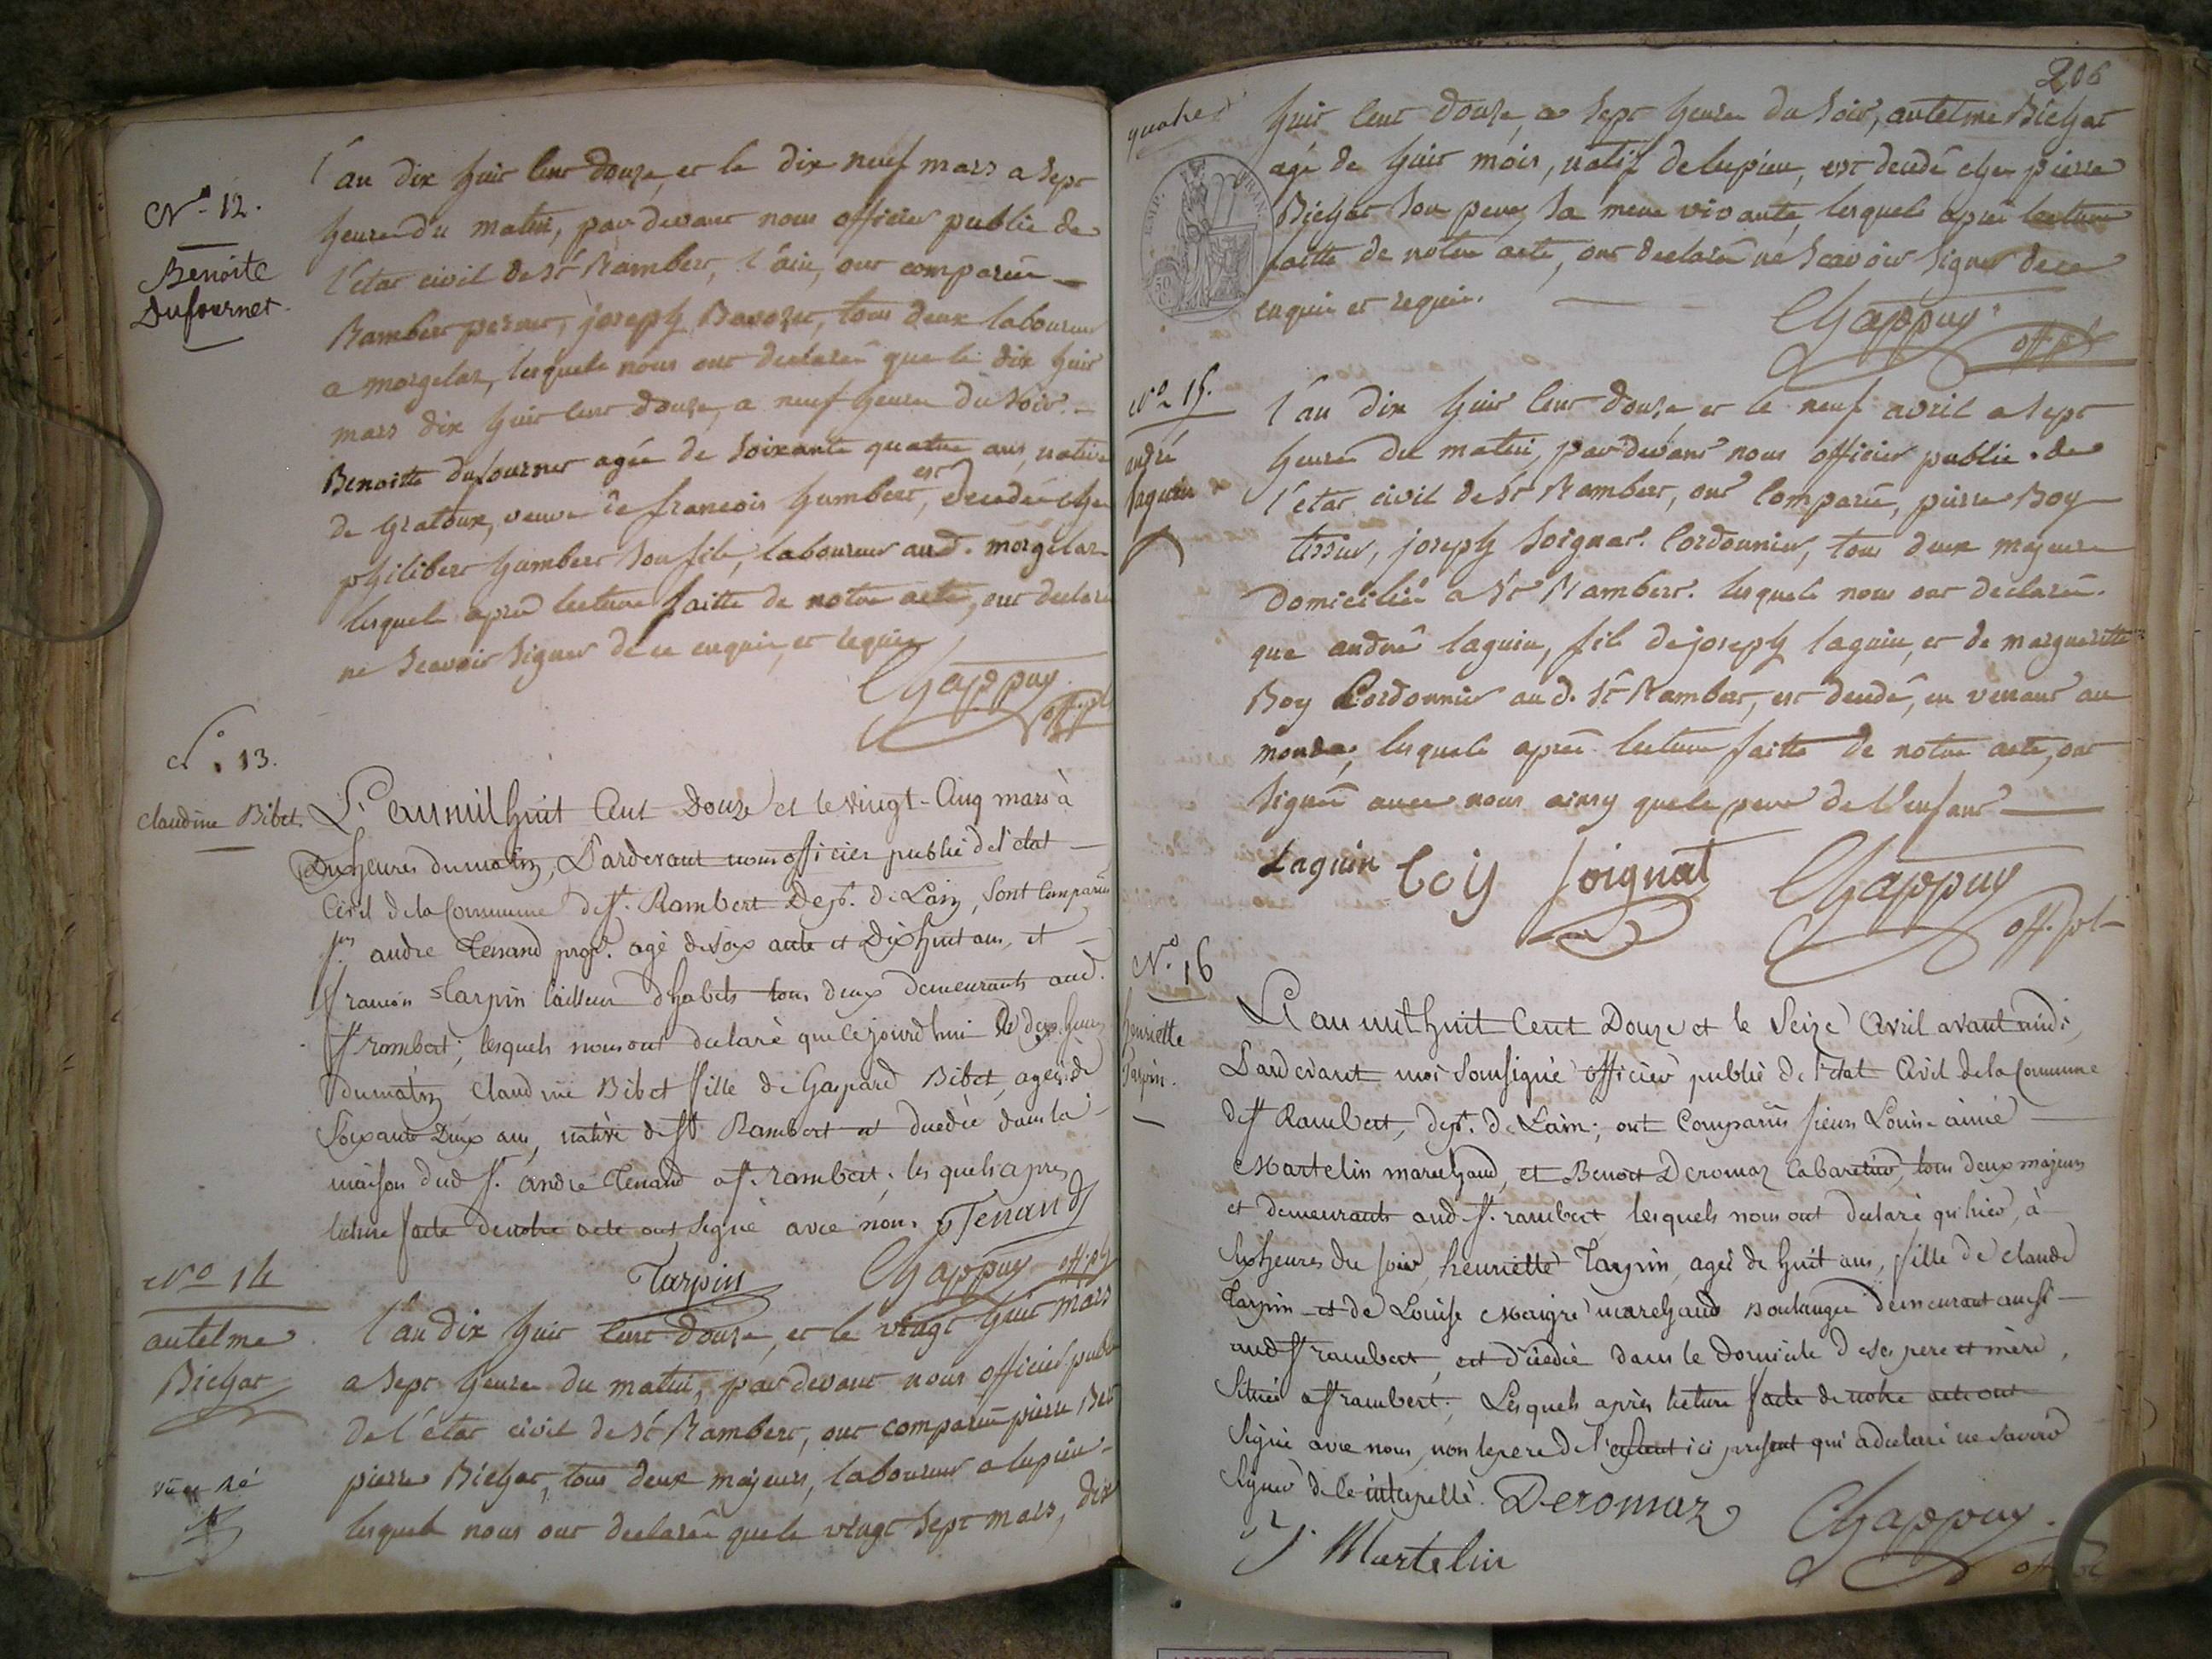 N° 12.
Benoite
Dufournet.
l'an dix huit cent douze et le dix neuf mars a sept
heure du matin, par devant nous officier public de
l'état civil de St Rambert, l'ain, ont comparûe
Rambert perrier, joseph Bavozet, tous deux laboureur
a morgelaz, lesquels nous ont declarée que le dix huit
mars dix huit cent douze, a neuf heure du soir.
Benoitte dufournet agée de soixante quatre ans, native
de Gratoux, veuve de francois humbert, est decedée chez
philibert humbert son fils, laboureur aud. morgelaz
lesquels après lecture faitte de notre acte, ont declaré
ne scavoir signer de ce enquis, et requis
Chappuy off. pb
N° 13.
Claudine Bibet.
L'an mil huit Cent Douze et le vingt-Cinq mars à
Dix heures du matin, Pardevant nous officier public de l'etat
Civil de la Commune de St. Rambert Dept. de L'ain, sont Comparus
Sr. andre Tenand propr. agé de soixante et Dix huit ans, et
francois Tarpin tailleur d'habits tous deux demeurants aud.
St rambert, lesquels nous ont declaré que cejourd'hui à deux heures
du matin Claudine Bibet fille de Gaspard Bibet, agée de
Soixante Deux ans, native de St Rambert est decedée dans la
maison dud Sr. andre Tenand a St. rambert, les quels apres
lecture faite de notre acte ont signé avec nous. Tenand
Tarpin Chappuy off. pb
N° 14
antelme
Bichat
l'an dix huit cent douze, et le vingt huit mars
a sept heure du matin, par devant nous officier public
de l'état civil de St Rambert, ont comparûe pierre
pierre Bichat, tous deux majeurs, laboureur a lupieu
lesquels nous ont declarée que le vingt sept mars, dix
206
huit cent douze, a sept heure du soir, antelme Bichat
agé de huit mois, natif de lupieu, est decedé chez pierre
Bichat son pere, sa mere vivante, lesquels après lecture
faitte de notre acte, ont declarée ne scavoir signer de ce
enquis et requis.
EMP. FRAN.
Chappuy
off. pb
N° 15.
andré
laguin
l'an dix huit cent douze, et le neuf avril a sept
heure du matin, par devant nous officier public de
l'état civil de St Rambert, ont comparûe, pierre Boy
tissier, joseph Soignat. Cordonnier, tous deux majeure
domiciliée a St Rambert. lesquels nous ont declarée.
que andré laguin, fils de joseph laguin, et de margueritte
Boy Cordonnier aud. St Rambert, est decedé, en venant au
monde, lesquels après lecture faitte de notre acte, ont
signée avec nous ainsy que le pere de l'enfant
Laguin boy Soignat Chappuy
off. pb
N° 16
henriette
Tarpin.
L'an mil huit Cent Douze et le Seize Avril avant midi,
Pardevant moi soussigné officier public de l'etat Civil de la Commune
de St Rambert, dept. de L'ain, ont Comparus sieurs Louis aimé
Martelin marchand, et Benoit Deromaz Cabaretier, tous deux majeurs
et demeurants aud St. rambert lesquels nous ont declaré qu'hier, à
Six heures du soir, henriette Tarpin, agée de huit ans, fille de Claude
Tarpin et de Louise Maigre marchand Boulanger demeurant aussi
aud St rambert, est décedée dans le domicile de ses pere et mère,
Située a St rambert; Lesquels après lecture faite de notre acte ont
Signé avec nous, non le pere de l'enfant ici présent qui a declaré ne savoir
Signer de ce interpellé. Deromaz
Martelin Chappuy